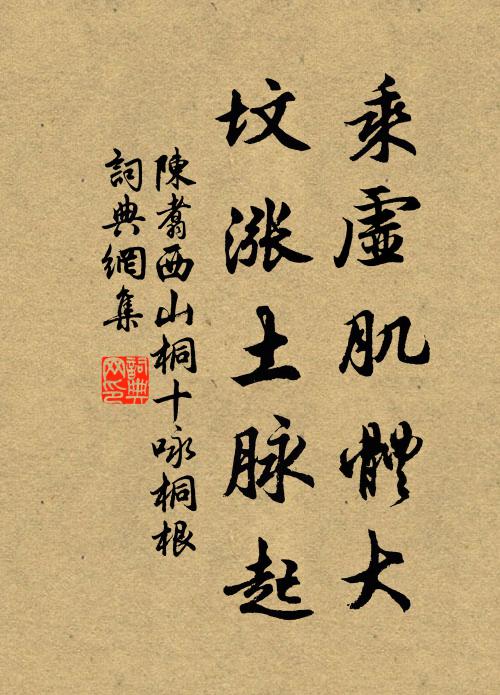 乘虛肌體大
坟漲土脉起
陳翥西山桐十咏桐根
詞典網集
詞典網印